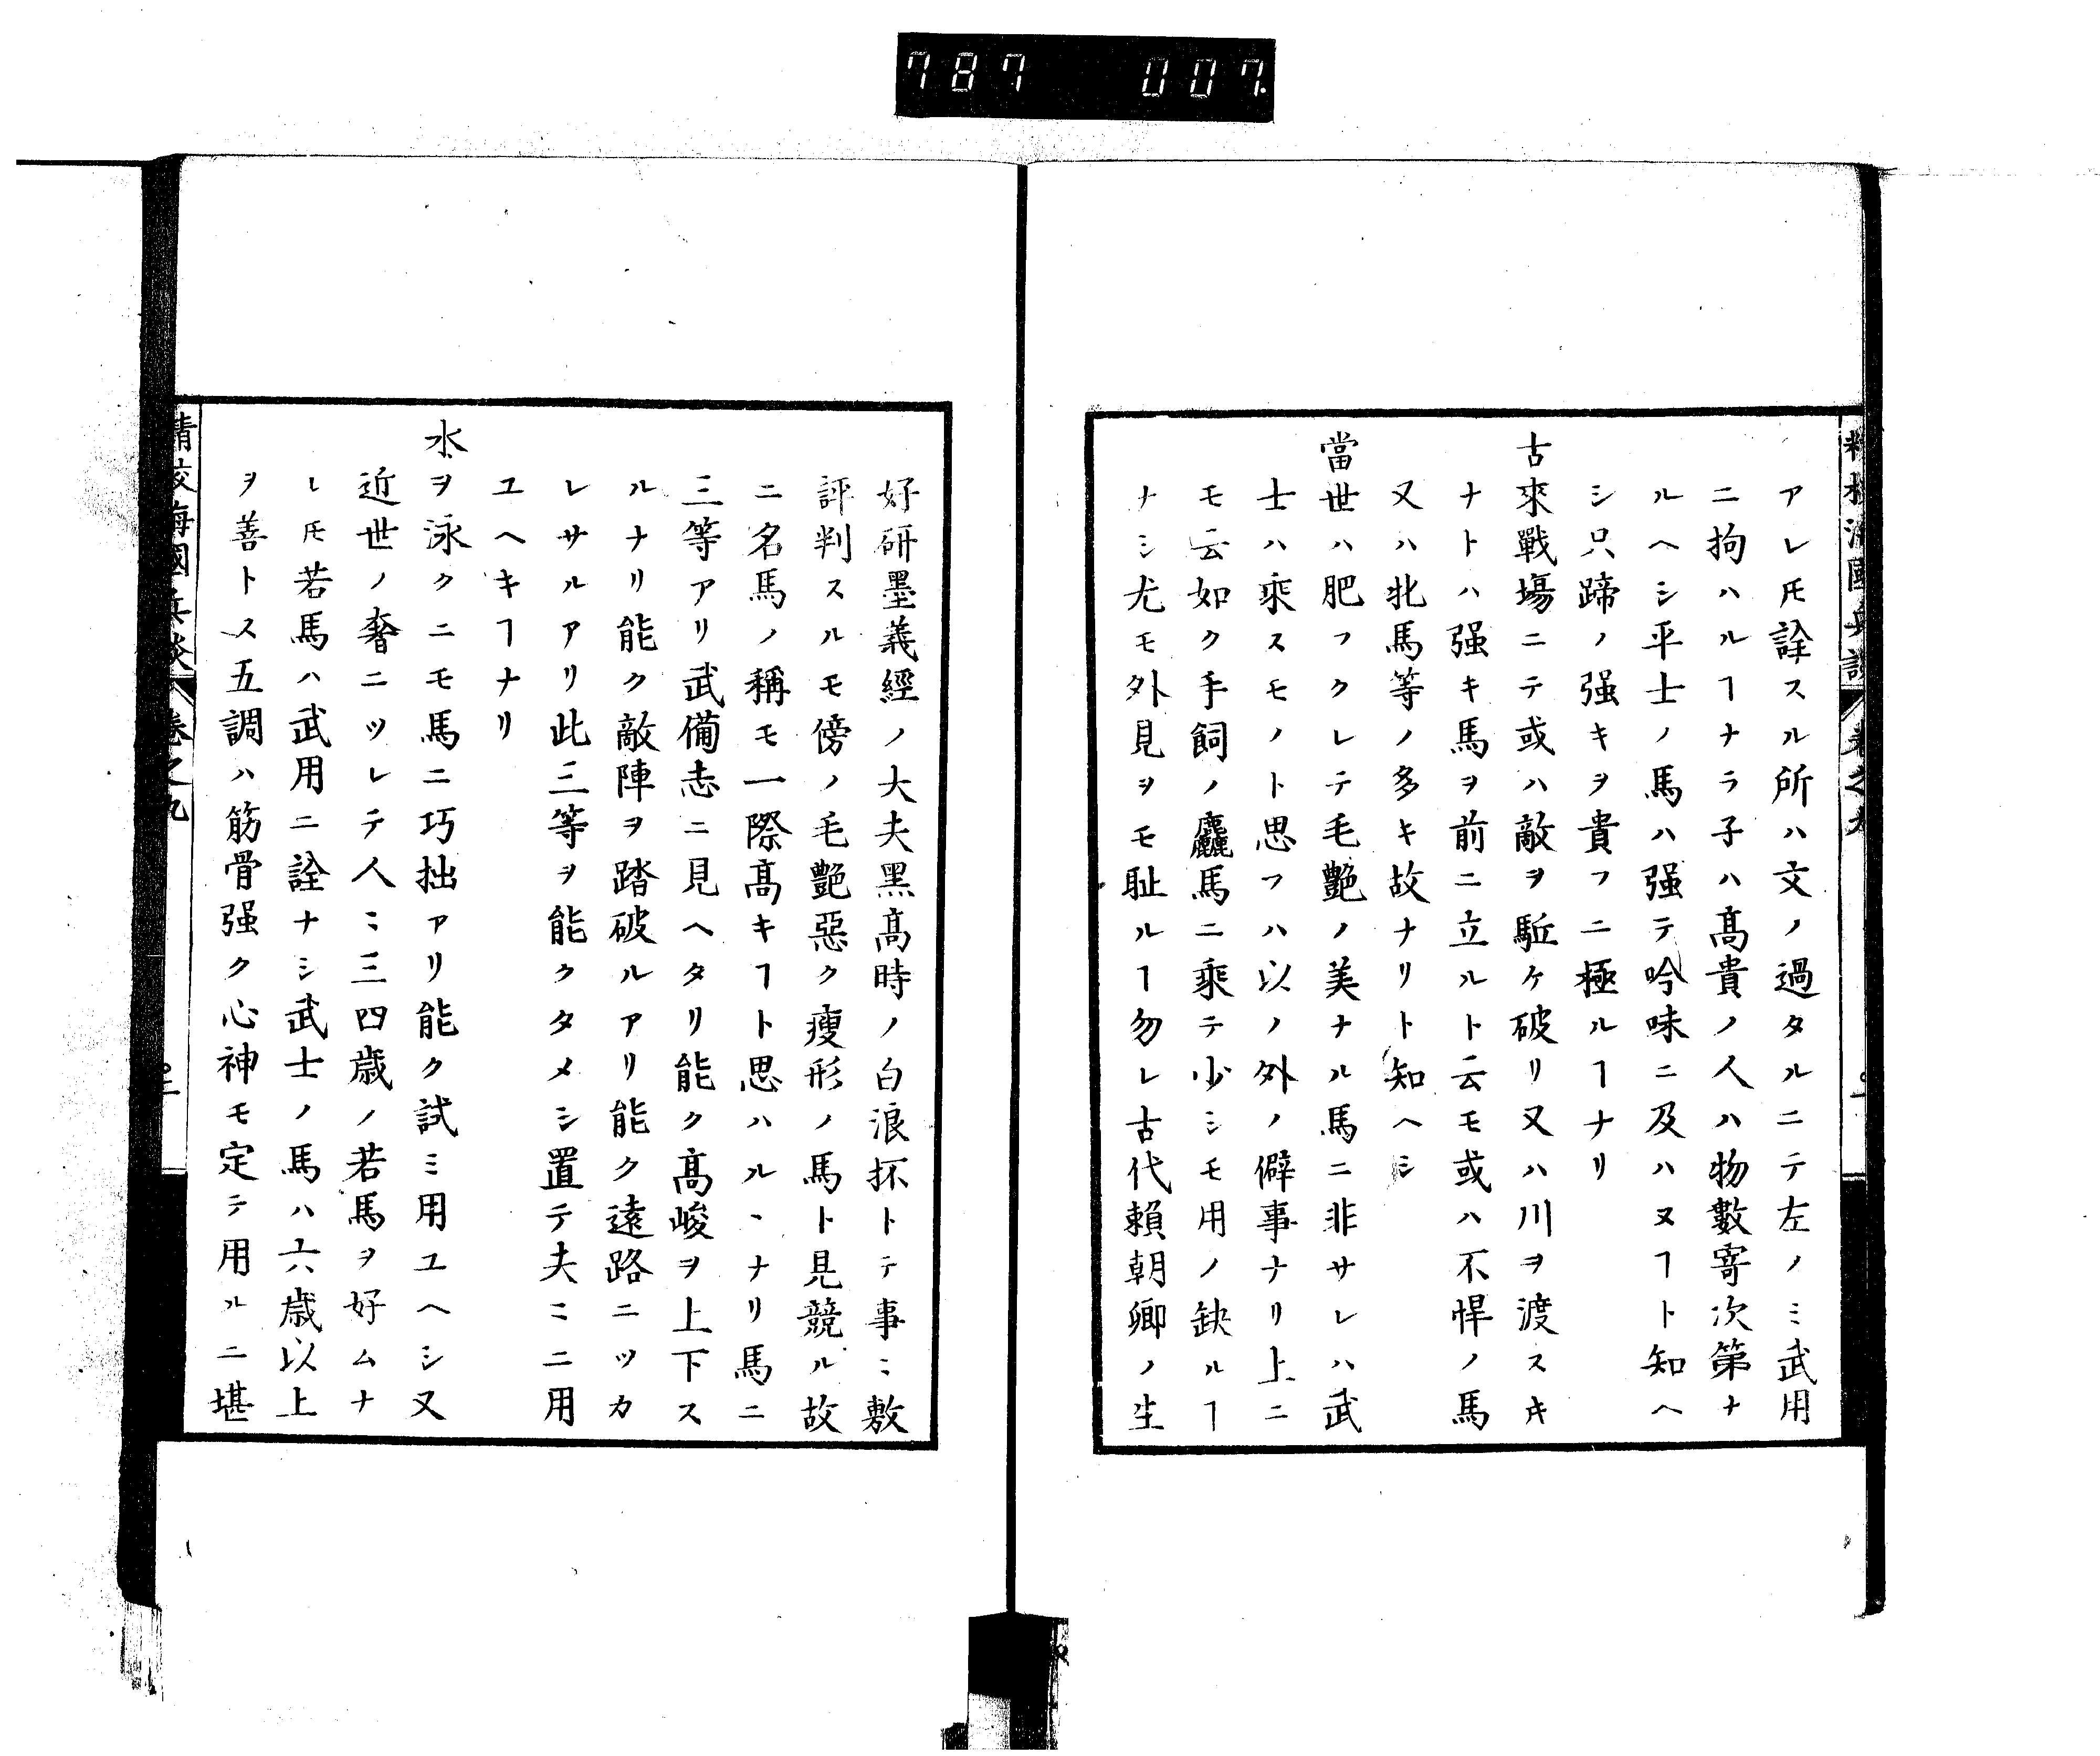 787 007.
アレ𪜈詮スル所ハ文ノ過タルニテ左ノミ武用
ニ拘ハルヿナラ子ハ髙貴ノ人ハ物數寄次第ナ
ルヘシ平士ノ馬ハ强テ吟味ニ及ハヌヿト知ヘ
シ只蹄ノ强キヲ貴フニ極ルヿナリ
古來戰塲ニテ或ハ敵ヲ駈ケ破リ又ハ川ヲ渡スキ
ナトハ强キ馬ヲ前ニ立ルト云モ或ハ不悍ノ馬
又ハ牝馬等ノ多キ故ナリト知ヘシ
當世ハ肥フクレテ毛艶ノ美ナル馬ニ非サレハ武
士ハ乘スモノト思フハ以ノ外ノ僻事ナリ上ニ
モ云如ク手飼ノ麤馬ニ乘テ少シモ用ノ缺ルヿ
ナシ尤モ外見ヲモ耻ルヿ勿レ古代賴朝卿ノ生
好研墨義經ノ大夫黑髙時ノ白浪抔トテ事ミ敷
評判スルモ傍ノ毛艶惡ク瘦形ノ馬ト見競ル故
ニ名馬ノ稱モ一際髙キヿト思ハルヽナリ馬ニ
三等アリ武備志ニ見ヘタリ能ク髙峻ヲ上下ス
ルナリ能ク敵陣ヲ踏破ルアリ能ク遠路ニツカ
レサルアリ此三等ヲ能クタメシ置テ夫ミニ用
ユヘキヿナリ
水ヲ泳クニモ馬ニ巧拙アリ能ク試ミ用ユヘシ又
近世ノ奢ニツレテ人ミ三四歳ノ若馬ヲ好ムナ
レ𪜈若馬ハ武用ニ詮ナシ武士ノ馬ハ六歳以上
ヲ善トス五調ハ筋骨强ク心神モ定テ用ルニ堪
精校海國兵談 卷之九